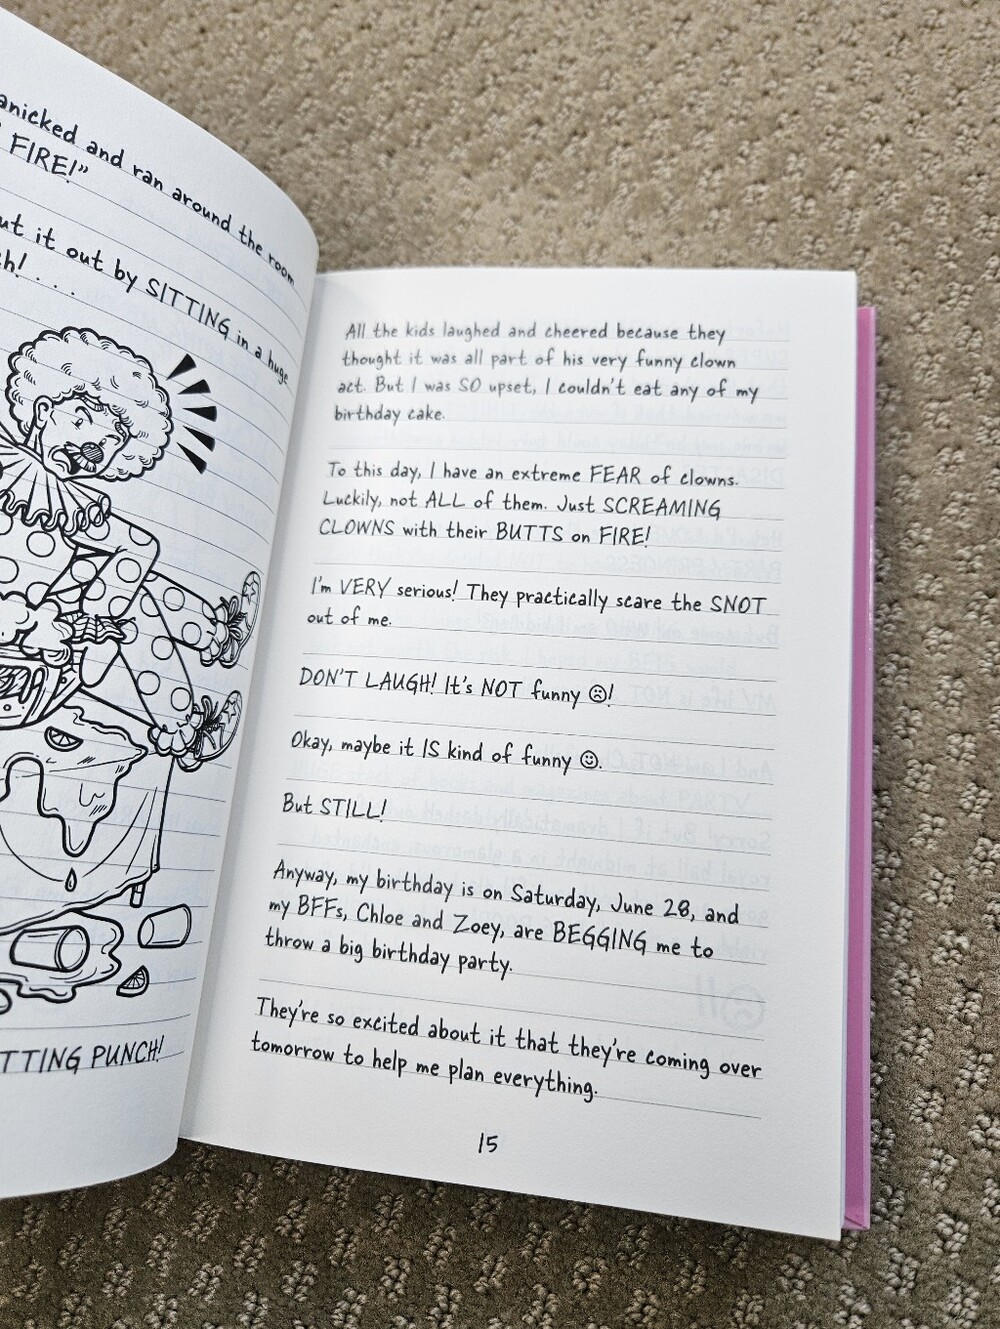 anicked and ran around the room
FIRE!"
ut it out by SITTING in a huge
h! . . .
TTING PUNCH!
All the kids laughed and cheered because they
thought it was all part of his very funny clown
act. But I was SO upset, I couldn't eat any of my
birthday cake.
To this day, I have an extreme FEAR of clowns.
Luckily, not ALL of them. Just SCREAMING
CLOWNS with their BUTTS on FIRE!
I'm VERY serious! They practically scare the SNOT
out of me.
DON'T LAUGH! It's NOT funny ☹!
Okay, maybe it IS kind of funny ☺.
But STILL!
Anyway, my birthday is on Saturday, June 28, and
my BFFs, Chloe and Zoey, are BEGGING me to
throw a big birthday party.
They're so excited about it that they're coming over
tomorrow to help me plan everything.
15